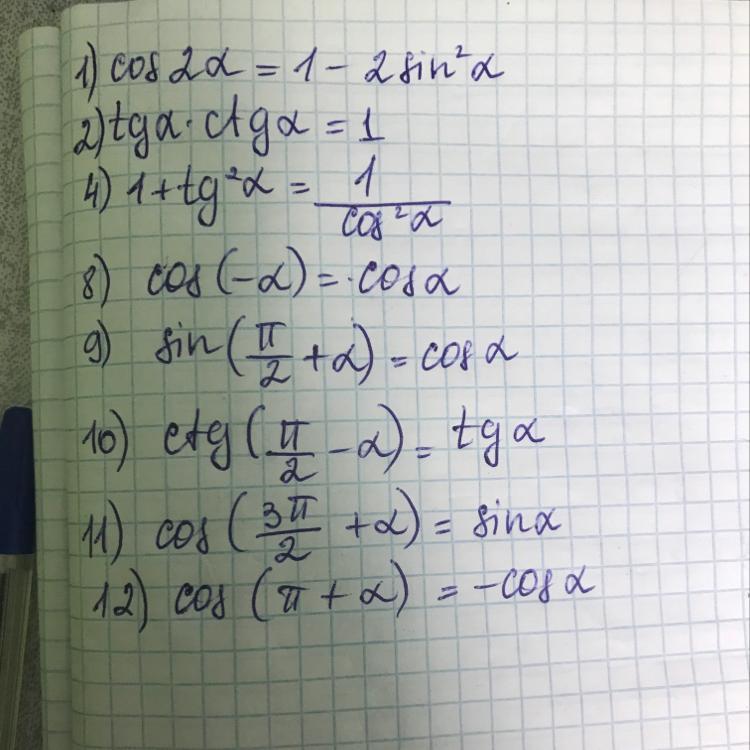 1) cos 2α = 1 − 2 sin²α
2) tgα · ctgα = 1
4) 1 + tg²α = 1/cos²α
8) cos (−α) = cosα
9) sin (π/2 + α) = cosα
10) ctg (π/2 − α) = tgα
11) cos (3π/2 + α) = sinα
12) cos (π + α) = −cosα